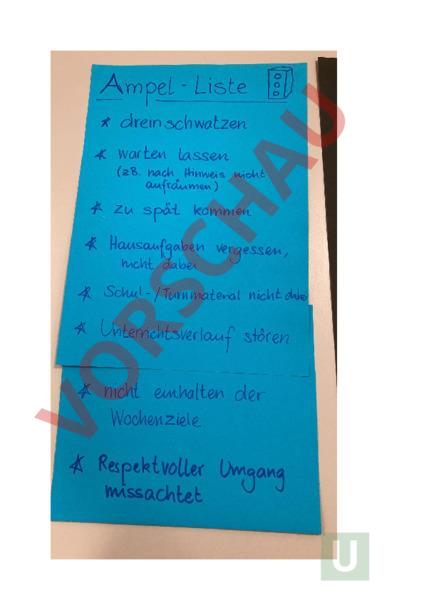 Ampel - Liste
* dreinschwatzen
* warten lassen
(zB. nach Hinweis nicht
aufräumen)
* zu spät kommen
* Hausaufgaben vergessen,
nicht dabei
* Schul-/Turnmaterial nicht dabei
* Unterrichtsverlauf stören
* nicht einhalten der
Wochenziele
* Respektvoller Umgang
missachtet
VORSCHAU
U